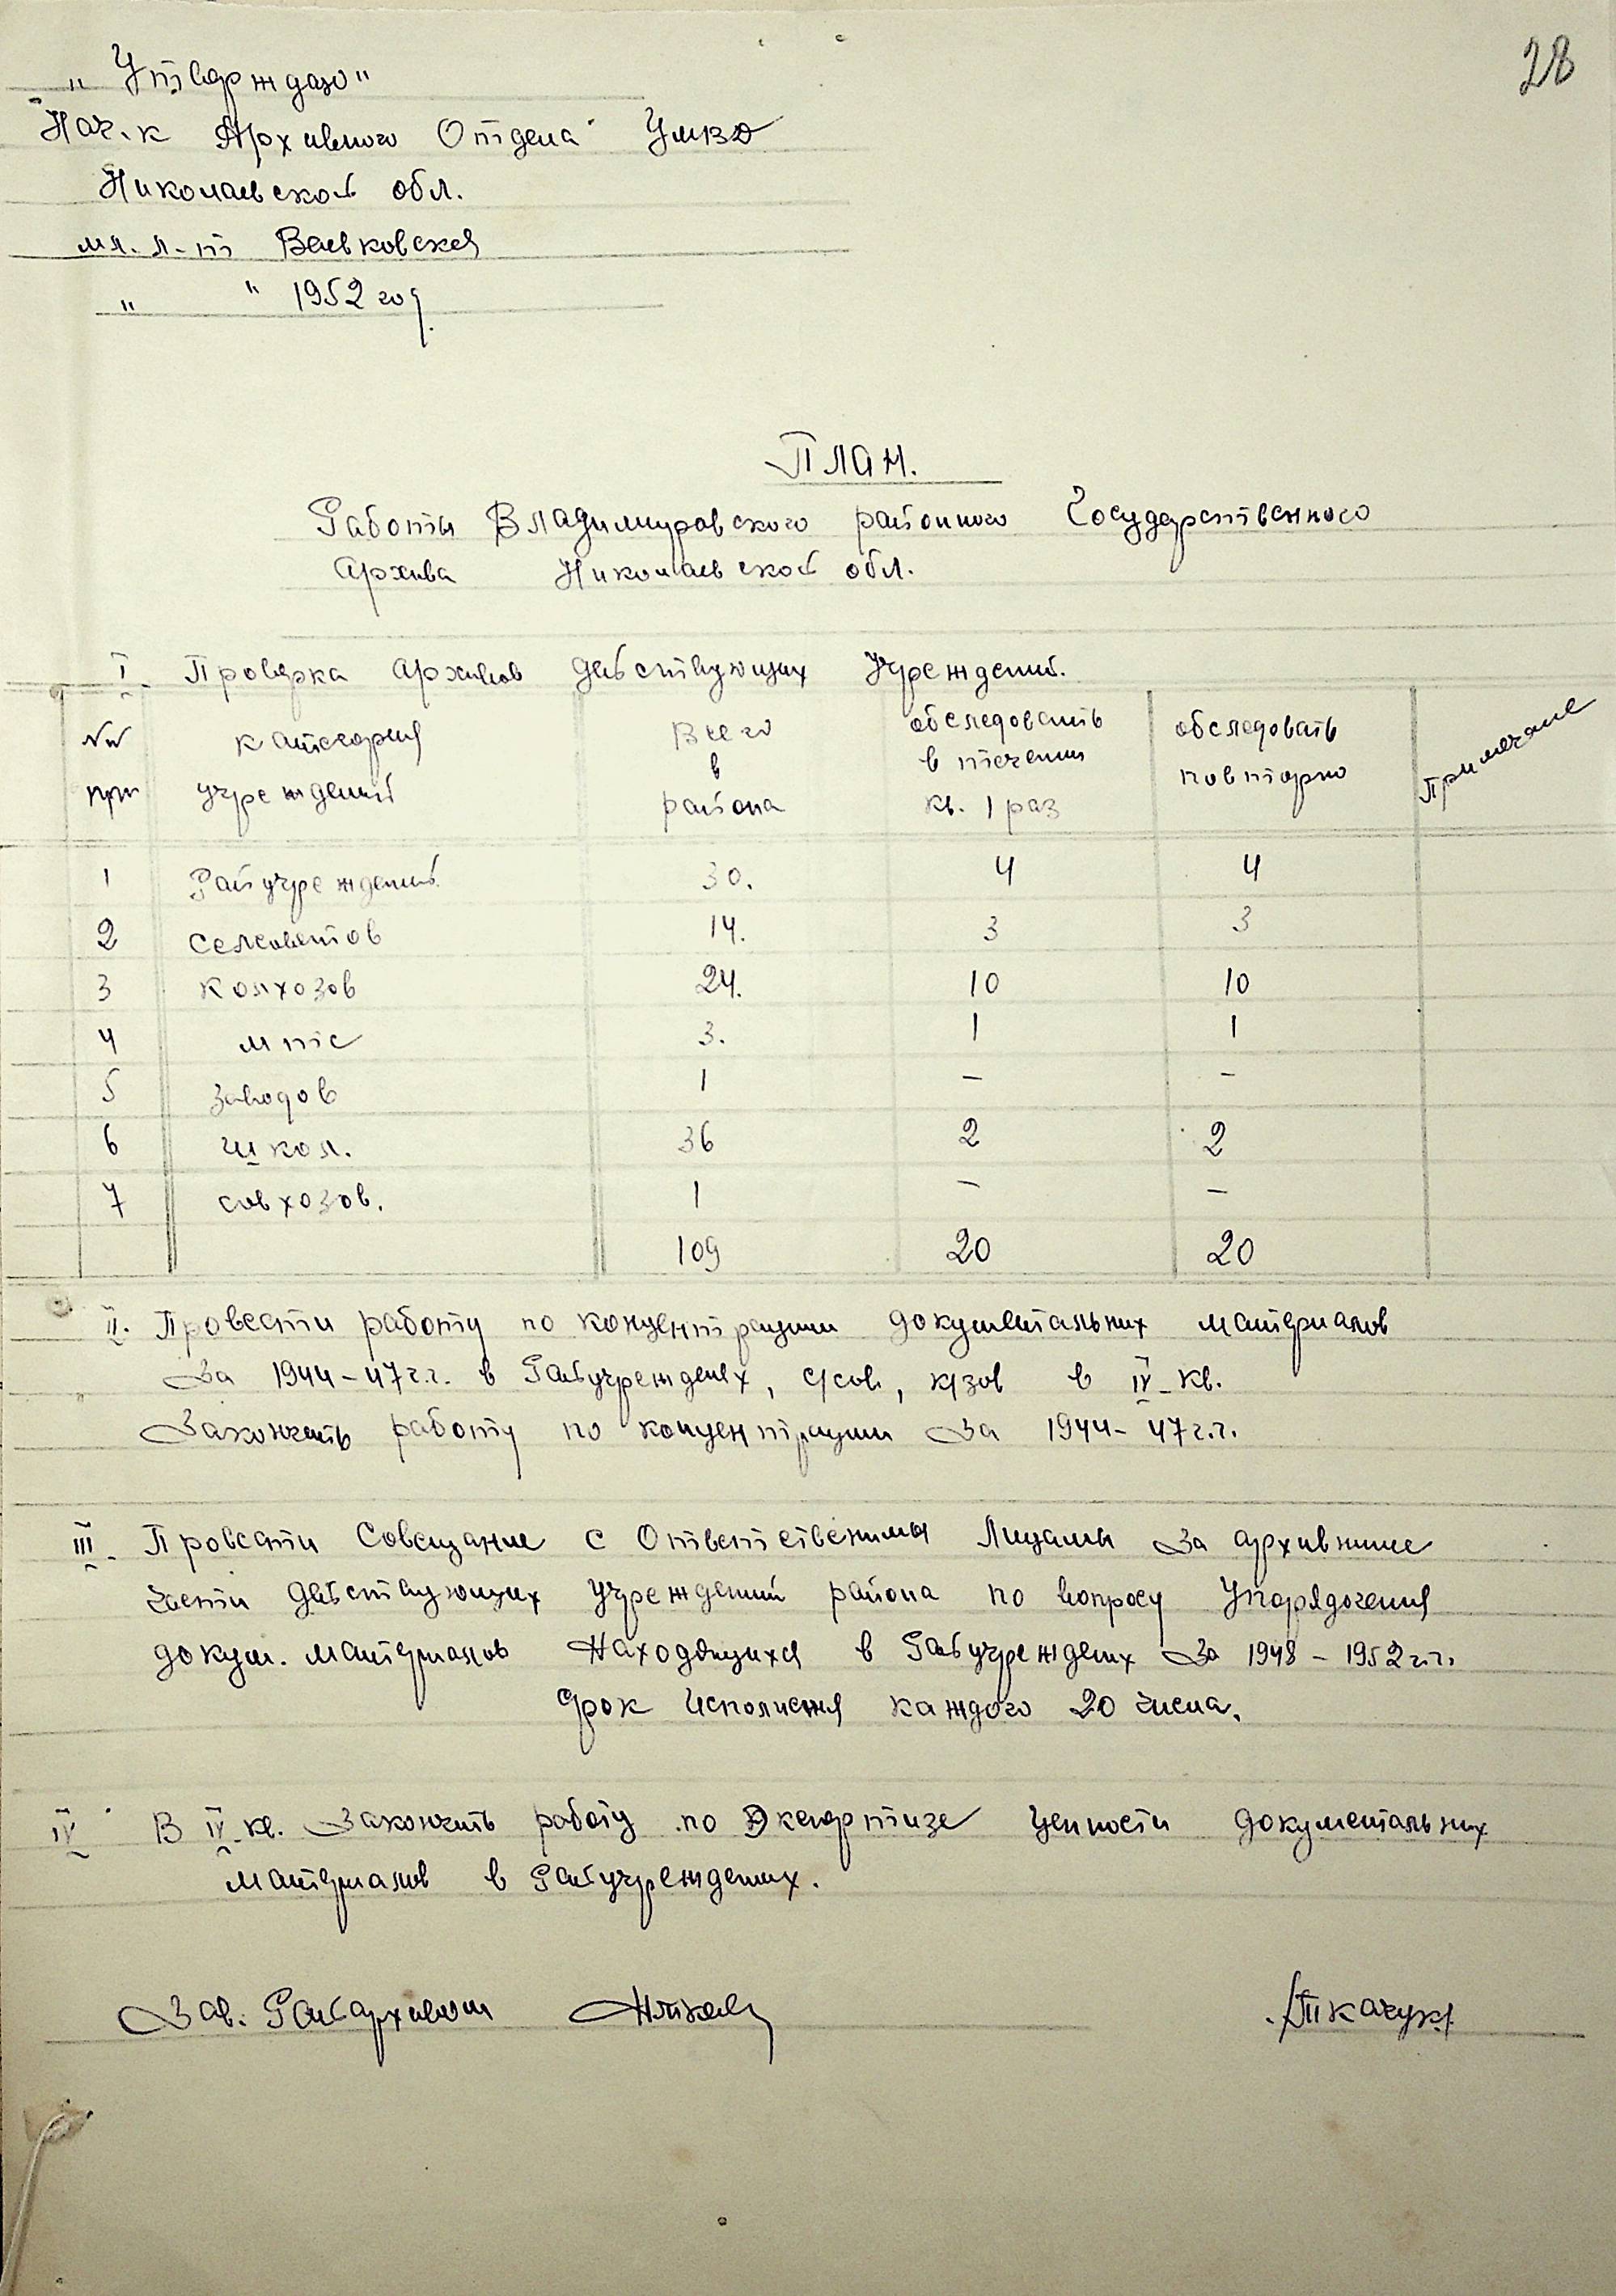 28
„Утверждаю"
Нач-к Архивного Отдела УМВД
Николаевской обл.
мл. л-т Вальковская
„ " 1952 год.
План.
Работы Владимировского районного Государственного
Архива Николаевской обл.
I. Проверка Архивов действующих Учреждений.
№№ категория Всего обследовать обследовать Примечание
пп учреждений в в течении повторно
района кв. 1 раз
1 Райучреждений 30. 4 4
2 сельсоветов 14. 3 3
3 колхозов 24. 10 10
4 мтс 3. 1 1
5 заводов 1 – –
6 школ. 36 2 2
7 совхозов. 1 – –
109 20 20
II. Провести работу по концентрации документальных материалов
За 1944–47 г.г. в Райучрежденях, с/сов, к/зов в IV кв.
Закончить работу по концентрации За 1944–47 г.г.
III. Провести Совещание с Ответственими Лицами За архивние
части Действующих Учреждений района по вопросу Упорядочения
докум. материалов Находящихся в Райучреждених За 1948–1952 г.г.
Срок Исполнения каждого 20 числа.
IV В IV кв. Закончить работу по Экспертизе Ценности документальних
материалов в Райучреждениях.
Зав. Райархивом /Ткачук/.